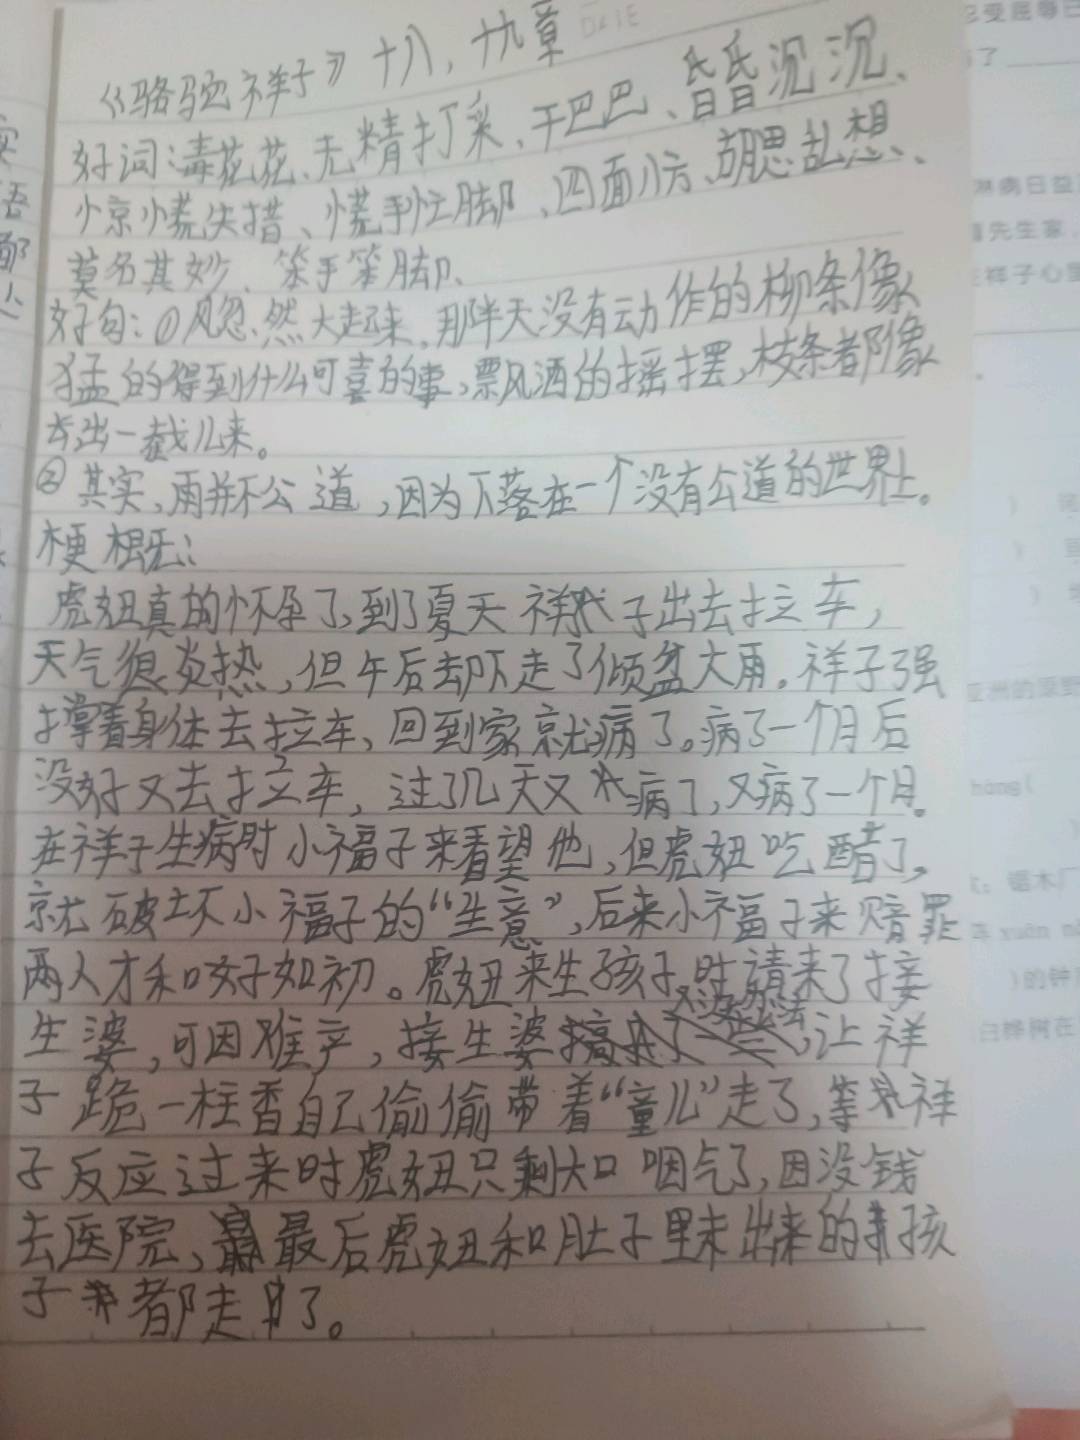 《骆驼祥子》十八，十九章
DATE
好词：毒花花、无精打采、干巴巴、昏昏沉沉、
惊慌失措、慌手忙脚、四面八方、胡思乱想、
莫名其妙、笨手笨脚、
好句：①风忽然大起来，那半天没有动作的柳条像
猛的得到什么可喜的事，飘洒的摇摆，枝条都像
长出一截儿来。
②其实，雨并不公道，因为下落在一个没有公道的世界上。
梗概：
虎妞真的怀孕了，到了夏天祥子出去拉车，
天气很炎热，但午后却下走了倾盆大雨。祥子强
撑着身体去拉车，回到家就病了。病了一个月后
没好又去拉车，过了几天又病了，又病了一个月。
在祥子生病时小福子来看望他，但虎妞吃醋了，
就破坏小福子的“生意”，后来小福子来赔罪
两人才和好如初。虎妞来生孩子时请来了接
生婆，可因难产，接生婆又没办法，让祥
子跪一柱香自己偷偷带着“童儿”走了，等祥
子反应过来时虎妞只剩大口咽气了，因没钱
去医院，最后虎妞和肚子里未出来的孩
子都走了。
忍受屈辱
了
病日益
先生家，
祥子心里
亚洲的
háng(
锯木厂
xuān
)的钟
白桦树在